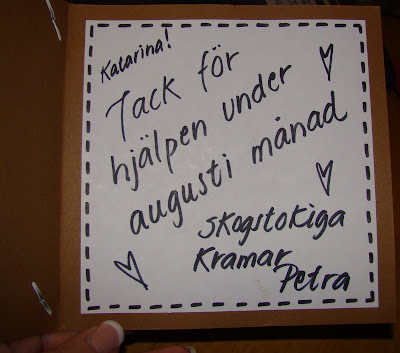 Katarina!
Tack för
hjälpen under
augusti månad
Skogstokiga
Kramar
Petra